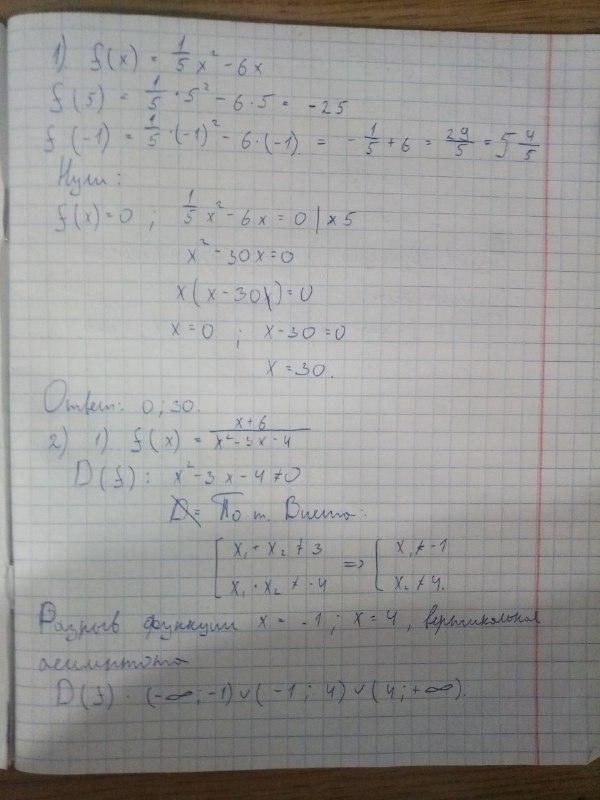 1) f(x) = 1/5 x² - 6x
f(5) = 1/5 · 5² - 6 · 5 = -25
f(-1) = 1/5 · (-1)² - 6 · (-1) = - 1/5 + 6 = 29/5 = 5 4/5
Нули:
f(x)=0 ; 1/5 x² - 6x = 0 | x 5
x² - 30x = 0
x(x - 30) = 0
x = 0 ; x - 30 = 0
x = 30.
Ответ: 0; 30.
2) 1) f(x) = x+6 / x² - 3x - 4
D(f): x² - 3x - 4 ≠ 0
D = По т. Виета:
[ x₁ + x₂ ≠ 3 => [ x₁ ≠ -1
x₁ · x₂ ≠ -4 x₂ ≠ 4.
Разрыв функции x = -1 ; x = 4, вертикальная
асимптота
D(f) · (-∞; -1) ∪ (-1; 4) ∪ (4; +∞).